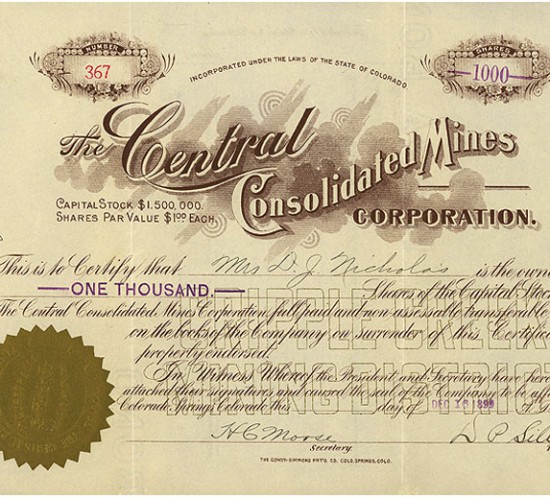 NUMBER
367
SHARES
1000
INCORPORATED UNDER THE LAWS OF THE STATE OF COLORADO.
The Central
Consolidated Mines
CORPORATION.
CAPITAL STOCK $1,500,000.
SHARES PAR VALUE $1.00 EACH.
This is to Certify that Mrs D. J. Nicholas is the own
ONE THOUSAND. Shares of the Capital Stoc
The Central Consolidated Mines Corporation, full paid and non-assessable transferable
on the books of the Company on surrender of this Certific
property endorsed.
CRIPPLE CREEK
MINING DISTRICT
In Witness Whereof the President and Secretary have here
attached their signatures and caused the seal of the Company to be aff
Colorado Springs Colorado this day of DEC 16 899
H C Moore
Secretary
THE GOWDY-SIMMONS PRT'G. CO. COLO. SPRINGS, COLO.